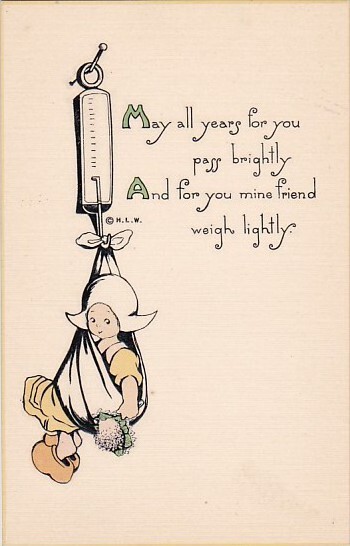 May all years for you
pass brightly
And for you mine friend
weigh lightly.
© H.L.W.